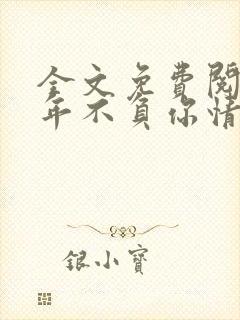 全文免費閱
年不負你情
银小寶